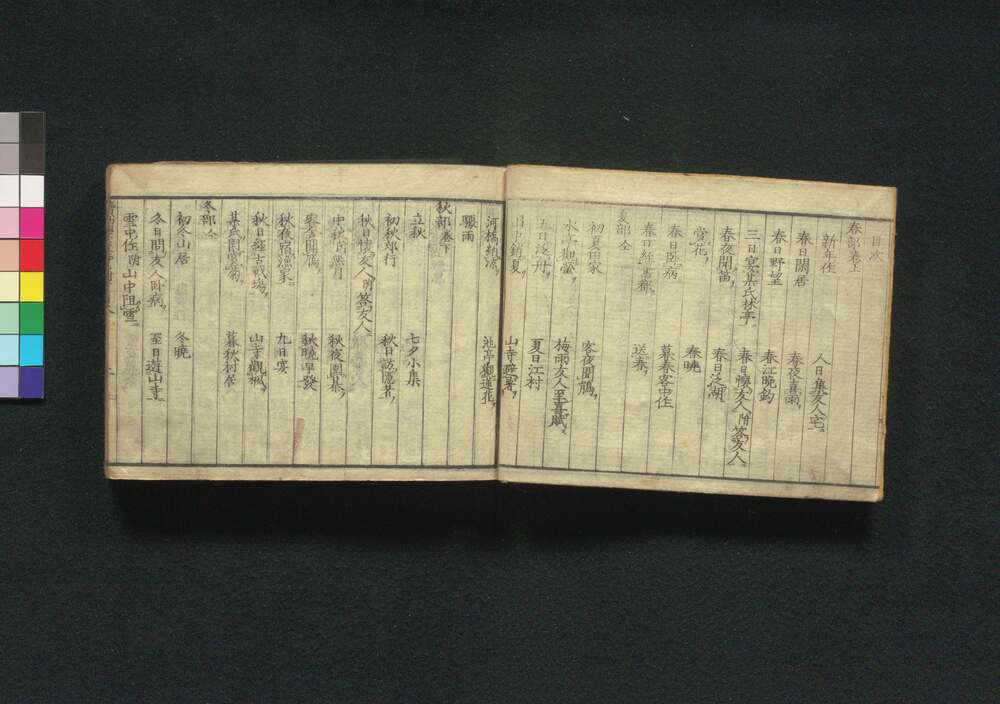 目次
春部卷上
新年作　人日集友人宅
春日閑居　春夜喜雨
春日野望　春江晩釣
三日宴某氏林亭　春日懐友人附答友人
春夜聞笛　春日泛湖
賞花　春曉
春日臥病　暮春客中作
春日經舊都　送春
夏部仝
初夏田家　客夜聞鵑
水亭觀螢　梅雨友人至喜賦
夏日泛舟　夏日江村
銷夏　山寺避暑
河橋納涼　池亭觀蓮花
驟雨
秋部卷下
立秋　七夕小集
初秋郊行　秋日訪隱者
秋日懐友人附答友人
中秋賞月　秋夜圍棊
聞鴈　秋曉早發
秋夜宿漁家　九日宴
秋日經古戰場　山寺觀楓
某氏園賞菊　暮秋村居
冬部仝
初冬山居　冬曉
冬日問友人臥病　至日遊山寺
雪中作附山中阻雪